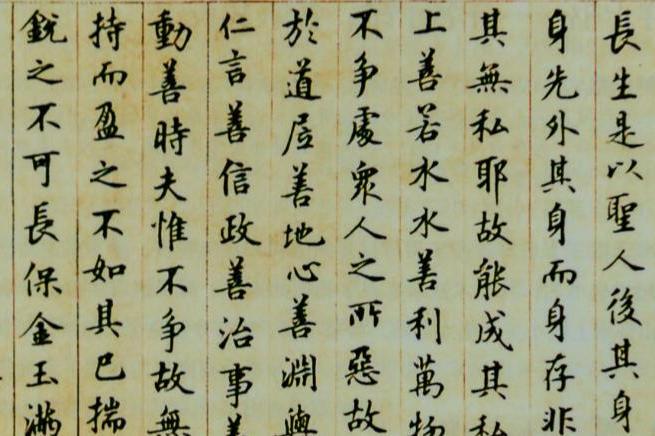 長生是以聖人後其身
身先外其身而身存非
其無私耶故能成其私
上善若水水善利萬物
不争處衆人之所惡故
於道居善地心善淵與
仁言善信政善治事善
動善時夫惟不争故無
持而盈之不如其已揣
銳之不可長保金玉滿